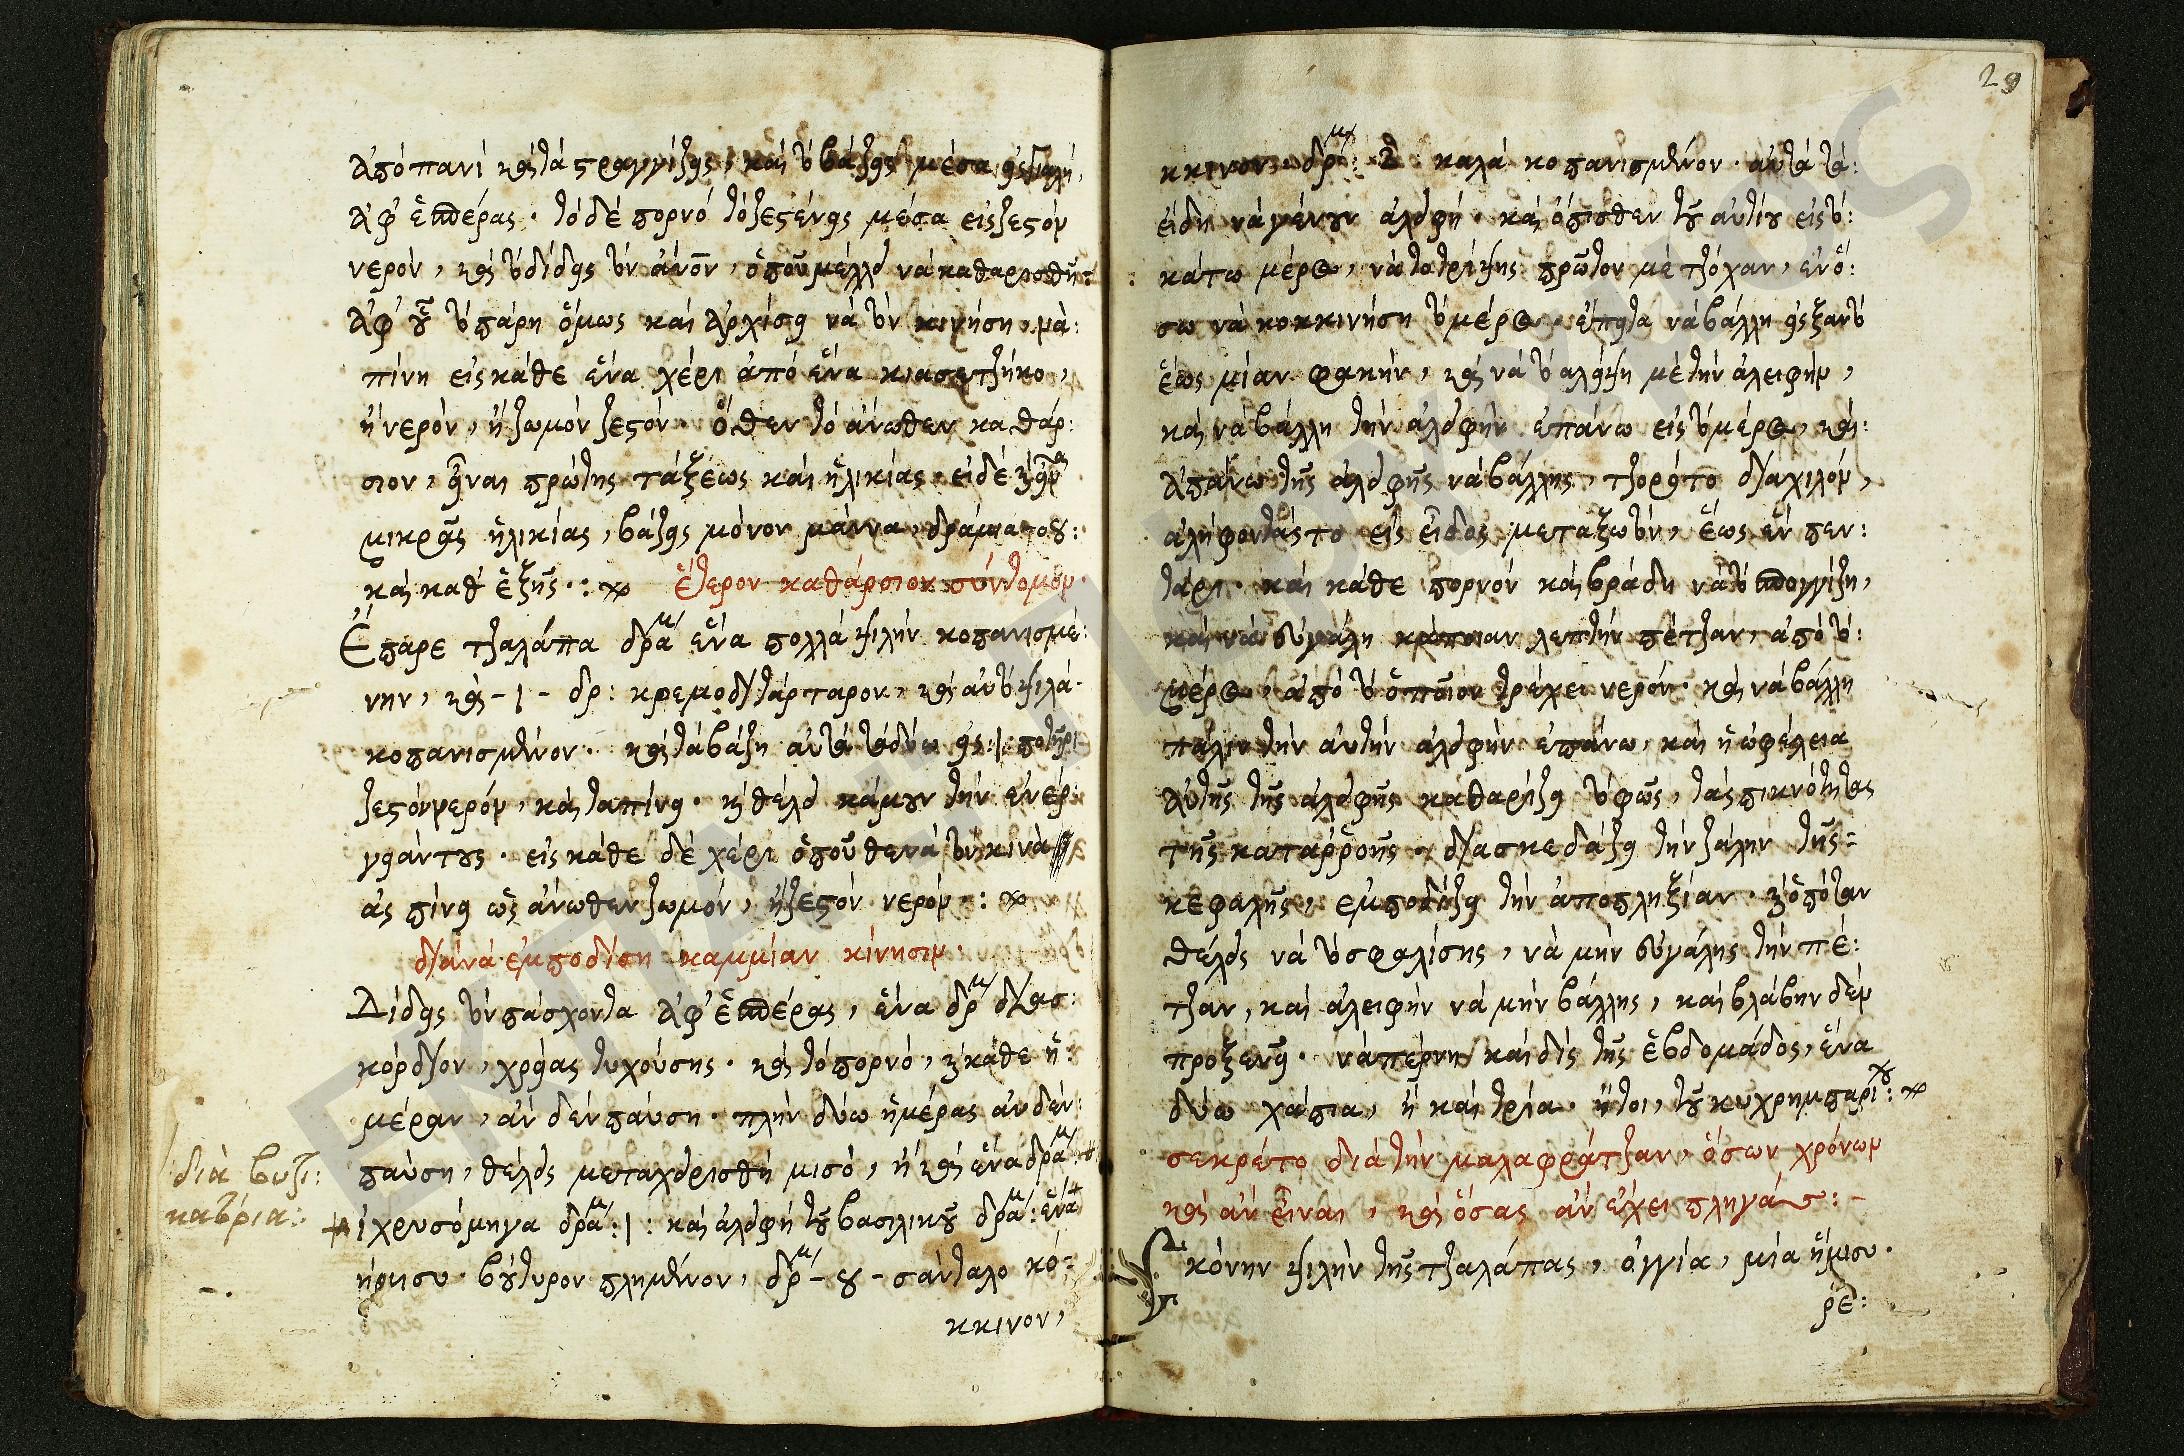 ἀπὸ πανὶ καὶ τὰ στραγγίζεις, καὶ τὸ βάζεις μέσα εἰς γιαλὴ,
ἀφ᾽ ἑσπέρας. τὸ δὲ πορνὸ τὸ ζεσένεις μέσα εἰς ζεστὸν
νερὸν, καὶ τὸ δίδεις τὸν ἄνον, ὁποῦ μέλλει νὰ καθαρισθῇ:
ἀφ᾽ οὗ τὸ πάρη ὅμως καὶ ἀρχίσει νὰ τὸν κινήση, νὰ:
πίνη εἰς κάθε ἕνα χέρι ἀπὸ ἕνα κιασετζήκο,
ἢ νερὸν, ἢ ζωμὸν ζεστόν. ὅθεν τὸ ἄνωθεν καθάρ:
σιον, εἶναι πρώτης τάξεως καὶ ἡλικίας. εἰδὲ καὶ εἶναι
μικρᾶς ἡλικίας, βάζεις μόνον μάννα, δράμια που:
καὶ καθ᾽ ἑξῆς.: ἕτερον καθάρσιον σύντομον.
Ἔπαρε τζαλάπα δρά ἕνα πολλὰ ψιλὴν κοπανισμέ:
νην, καὶ -1- δρ: κρεμοδιτάρταρον, καὶ αὐτὸ ψιλὰ-
κοπανισμένον. καὶ τὰ βάζη αὐτὰ τὰ δύω εἰς :1: ποτῆρι
ζεστὸν νερὸν, καὶ τὰ πίνει. καὶ θέλει κάμουν τὴν ἐνέρ:
γειάν τους. εἰς κάθε δὲ χέρι ὁποῦ θενὰ τὸν κινὰ
ἂς πίνει ὡς ἄνωθεν ζωμὸν, ἢ ζεστὸν νερόν.:
διὰ νὰ ἐμποδίση καμμίαν κίνησιν.
Δίδεις τὸν πάσχοντα ἀφ᾽ ἑσπέρας, ἕνα δρ διασ:
κόρδιον, χρείας τυχούσης. καὶ τὸ πορνὸ, καὶ κάθε ἡ:
μέραν, ἂν δὲν παύση. πλὴν δύω ἡμέρας ἂν δὲν:
παύση, θέλει μεταχειρισθῆ μισὸ, ἢ καὶ ἕνα δρά:
διὰ βυζι:
κατρια:
ἰχρυσόμηγα δρά :1: καὶ ἀλοιφὴ τοῦ βασιλικοῦ δρά: ἕνα
ήμισυ. βούτυρον πλημένον, δρ -8- σάνταλο κό:
κκινον,
29
κκινον. δρ: 2 καλὰ κοπανισμένον. αὐτὰ τὰ:
εἴδη νὰ γένουν ἀλοιφή. καὶ ὄπισθεν τοῦ αὐτίου εἰς τὸ:
κάτω μέρος, νὰ τὸ τρίψης πρῶτον μὲ τζόχαν, ἐν ὅ:
σω νὰ κοκκινήση τὸ μέρος. ἔπειτα νὰ βάλλη εἰς ξαντὸ
ἕως μίαν φακὴν, καὶ νὰ τὸ αλείψη μὲ τὴν ἀλειφὴν,
καὶ νὰ βάλλη τὴν ἀλοιφὴν ἐπάνω εἰς τὸ μέρος, καὶ:
ἀπάνω τῆς ἀλοιφῆς νὰ βάλλης, τζορότο διαχιλὸν,
ἀλήφοντάς το εἰς εἶδος μεταξωτὸν, ἕως ἓν πεν:
τάρι. καὶ κάθε πορνὸν καὶ βράδη νὰ τὸ σπογγίζη,
καὶ νὰ εὐγάλη κάποιαν λεπτὴν πέτζαν, ἀπὸ τὸ:
μέρος, ἀπὸ τὸ ὁποῖον τρέχει νερόν. καὶ νὰ βάλλη
πάλιν τὴν αὐτὴν ἀλοιφὴν ἐπάνω, καὶ ἡ ὠφέλεια
αὐτῆς τῆς ἀλοιφῆς καθαρίζει τὸ φῶς, τὰς πικνότητας
τῆς καταῤῥοῆς. διασκεδάζει τὴν ζάλην τῆς:
κεφαλῆς, ἐμποδίζει τὴν ἀποπληξίαν. καὶ ὁπόταν
θέλεις νὰ τὸ σφαλίσης, νὰ μὴν εὐγάλης τὴν πέ:
τζαν, καὶ ἀλειφὴν νὰ μὴν βάλλης, καὶ βλάβην δὲν
προξενεῖ. νὰ πέρνη καὶ δὶς τῆς ἑβδομάδος, ἕνα
δύω χάπια, ἢ καὶ τρία. ἤτοι, τοῦ κυχρημπαρίου:
σεκρέτο διὰ τὴν μαλαφράτζαν, ὅσων χρόνων
καὶ ἂν εἶναι, καὶ ὅσας ἂν ἔχει πληγάς:-
κόνην ψιλὴν τῆς τζαλάπας, ὀγγία, μία ἥμισυ.
ῥε:
ΕΚΠΑΙΔΕΥΤΙΚΟΣ